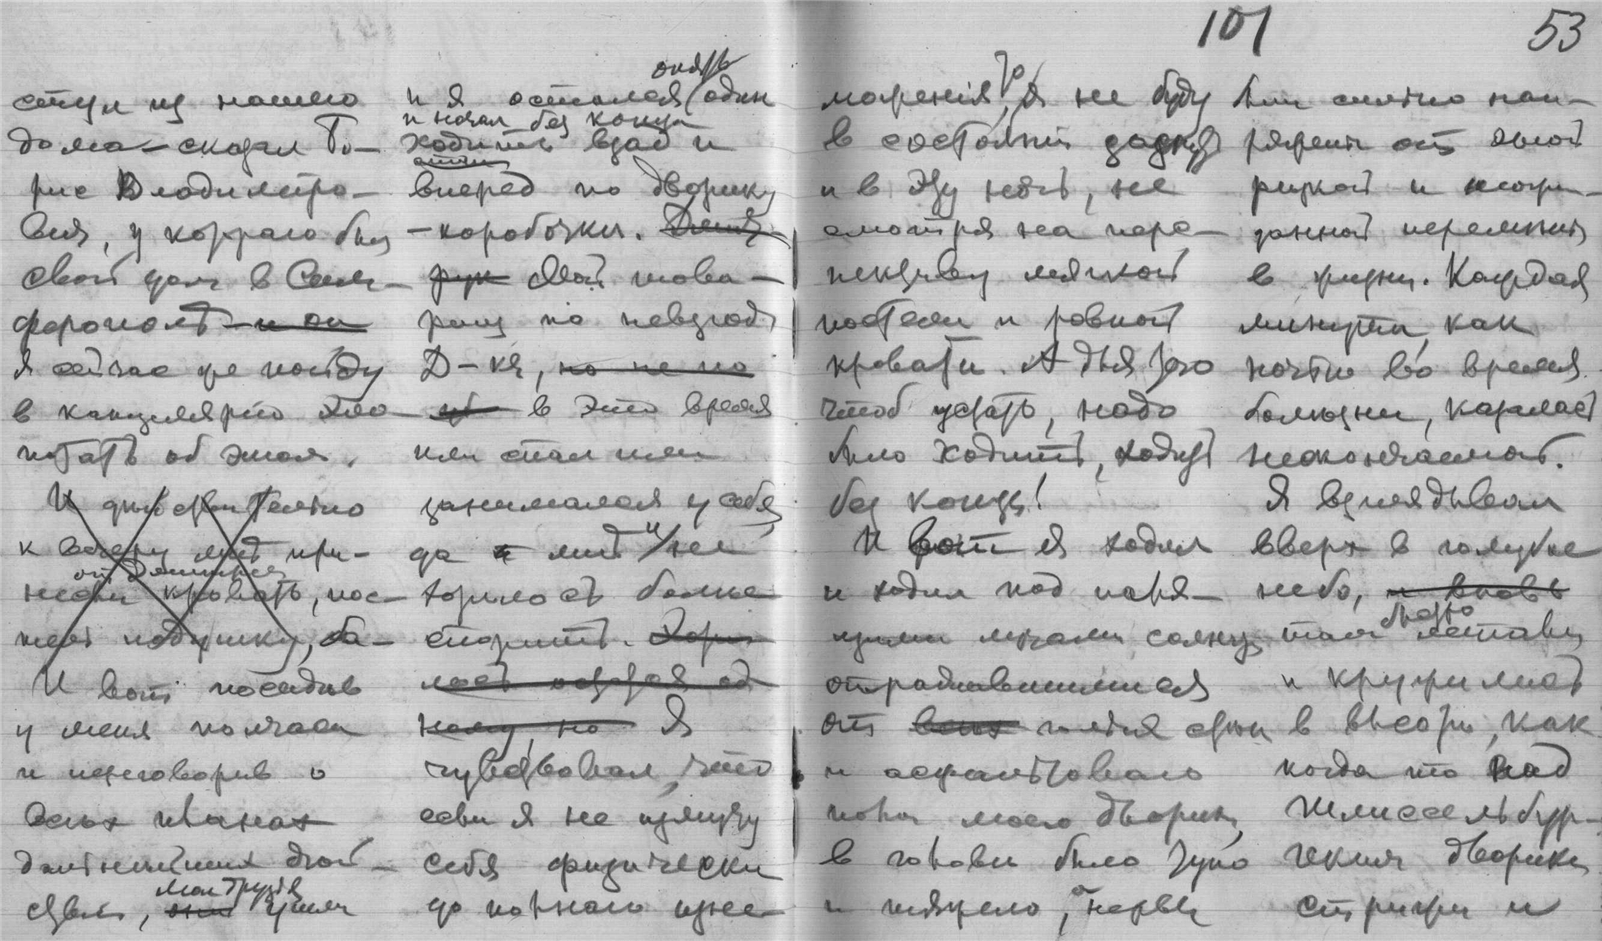 101
53
стул из нашего
дома – сказал Бо-
рис Владимиро-
вич, у котораго был
свой дом в Сим-
ферополѣ – и он
Я сейчас же пойду
в канцелярію хло-
потать об этом.
И действительно
к вечеру мнѣ при-
несли кровать, пос-
тель подушку,
И вот посидѣв
у меня полчаса
и переговорив о
всех планах
дальнѣйших дѣй-
ствий, они мои друзья ушли
и я остался опять один
и начал без конца
ходить взад и
вперед по дворику
– коробочки.
Мой това-
рищ по невзгодѣ
Д-кій, но не по
в это время
или спал или
занимался у себя,
да и мнѣ не
хотѣлось больше
спорить.
Я
чувствовал, что
если я не измучу
себя физически
до полнаго изне-
моженія, то я не буду
в состояніи заснуть
и в эту ночь, не
смотря на пере-
мягкой
постели и ровной
кровати. А для того
чтоб устать, надо
было ходить, ходить
без конца!
И вот я ходил
и ходил под паля-
щими лучами солнца,
отражавшимися
от всех голых стѣн
и асфальтоваго
пола моего дворика,
в головѣ было тупо
и тяжело, а нервы
были сильно нап-
ряжены от этой
рѣзкой и неожи-
данной перемѣны
в жизни. Каждая
минута, как
почти во время
болѣзни, казалась
нескончаемой.
Я взглядывал
вверх в голубое
небо, и вновь
там быстро летали
и кружились
в высотѣ, как
когда то над
Шлиссельбур-
гским двориком
стрижи и